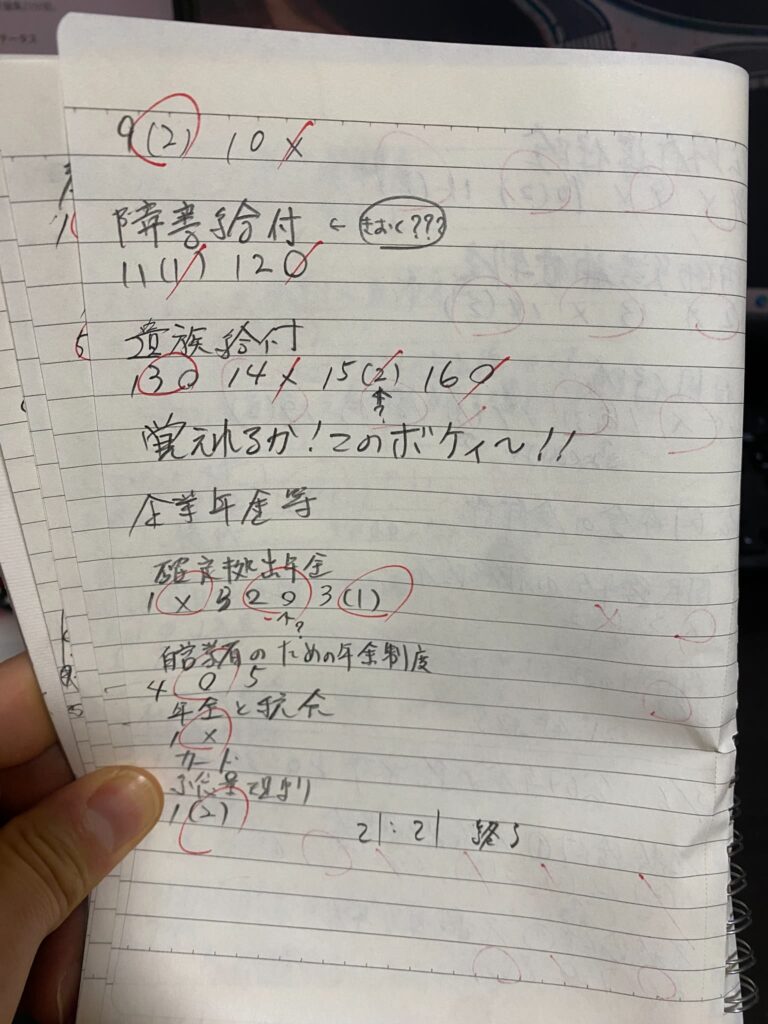 9 (2) 10 ×
障害給付 ← きおく???
11 (1) 12 0
遺族給付
13 0 14 × 15 (2) 16 0
↑?
覚えれるか!このボケィ〜!!
企業年金等
確定拠出年金
1 × 2 0 3 (1)
自営業者のための年金制度
4 0 5
年金と税金
1 ×
カード
1 (2)
21:21 終了